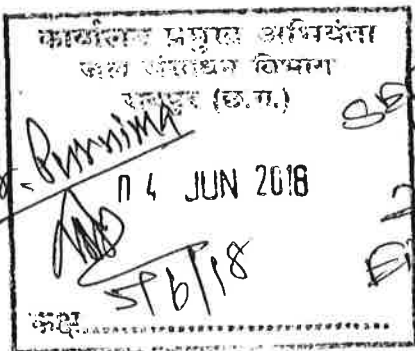 कार्यालय प्रमुख अभियंता
जल संसाधन विभाग
रायपुर (छ.ग.)
Purnima
04 JUN 2018
5/6/18